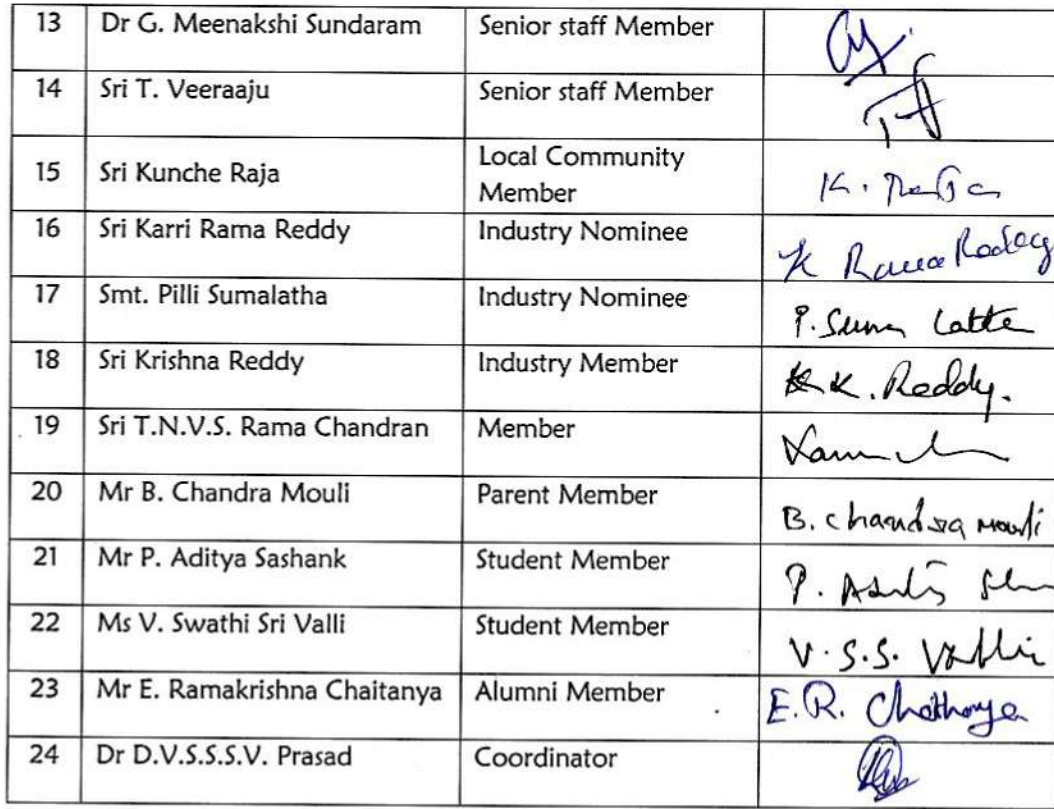 13 Dr G. Meenakshi Sundaram Senior staff Member
14 Sri T. Veeraaju Senior staff Member
15 Sri Kunche Raja Local Community
Member K. Raja
16 Sri Karri Rama Reddy Industry Nominee K Rama Reddy
17 Smt. Pilli Sumalatha Industry Nominee P. Suma Latha
18 Sri Krishna Reddy Industry Member K. Reddy.
19 Sri T.N.V.S. Rama Chandran Member
20 Mr B. Chandra Mouli Parent Member B. Chandra Mouli
21 Mr P. Aditya Sashank Student Member P.
22 Ms V. Swathi Sri Valli Student Member V.S.S. Valli
23 Mr E. Ramakrishna Chaitanya Alumni Member E.R. Chaithanya
24 Dr D.V.S.S.S.V. Prasad Coordinator